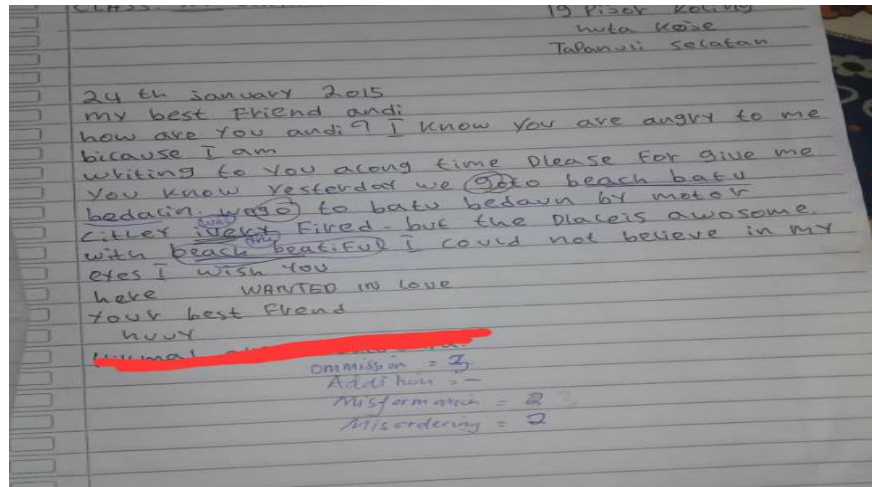 CLASS.
19 Pisor Koling
huta Koje
Tapanuli selatan
24 th january 2015
my best Friend andi
how are You andi? I Know you are angry to me
bicause I am
writing to You acong time please For give me
You Know Yesterday we goto beach batu
bedacin. we go to batu bedaun by motor
citley was ivery Fired - but the Placeis awosome.
with beach the beatiFul I could not believe in my
eyes I wish You
here WANTED IN Love
Your best Friend
huuy
ommission = 3
Addition = -
Misformation = 2
Misordering = 2